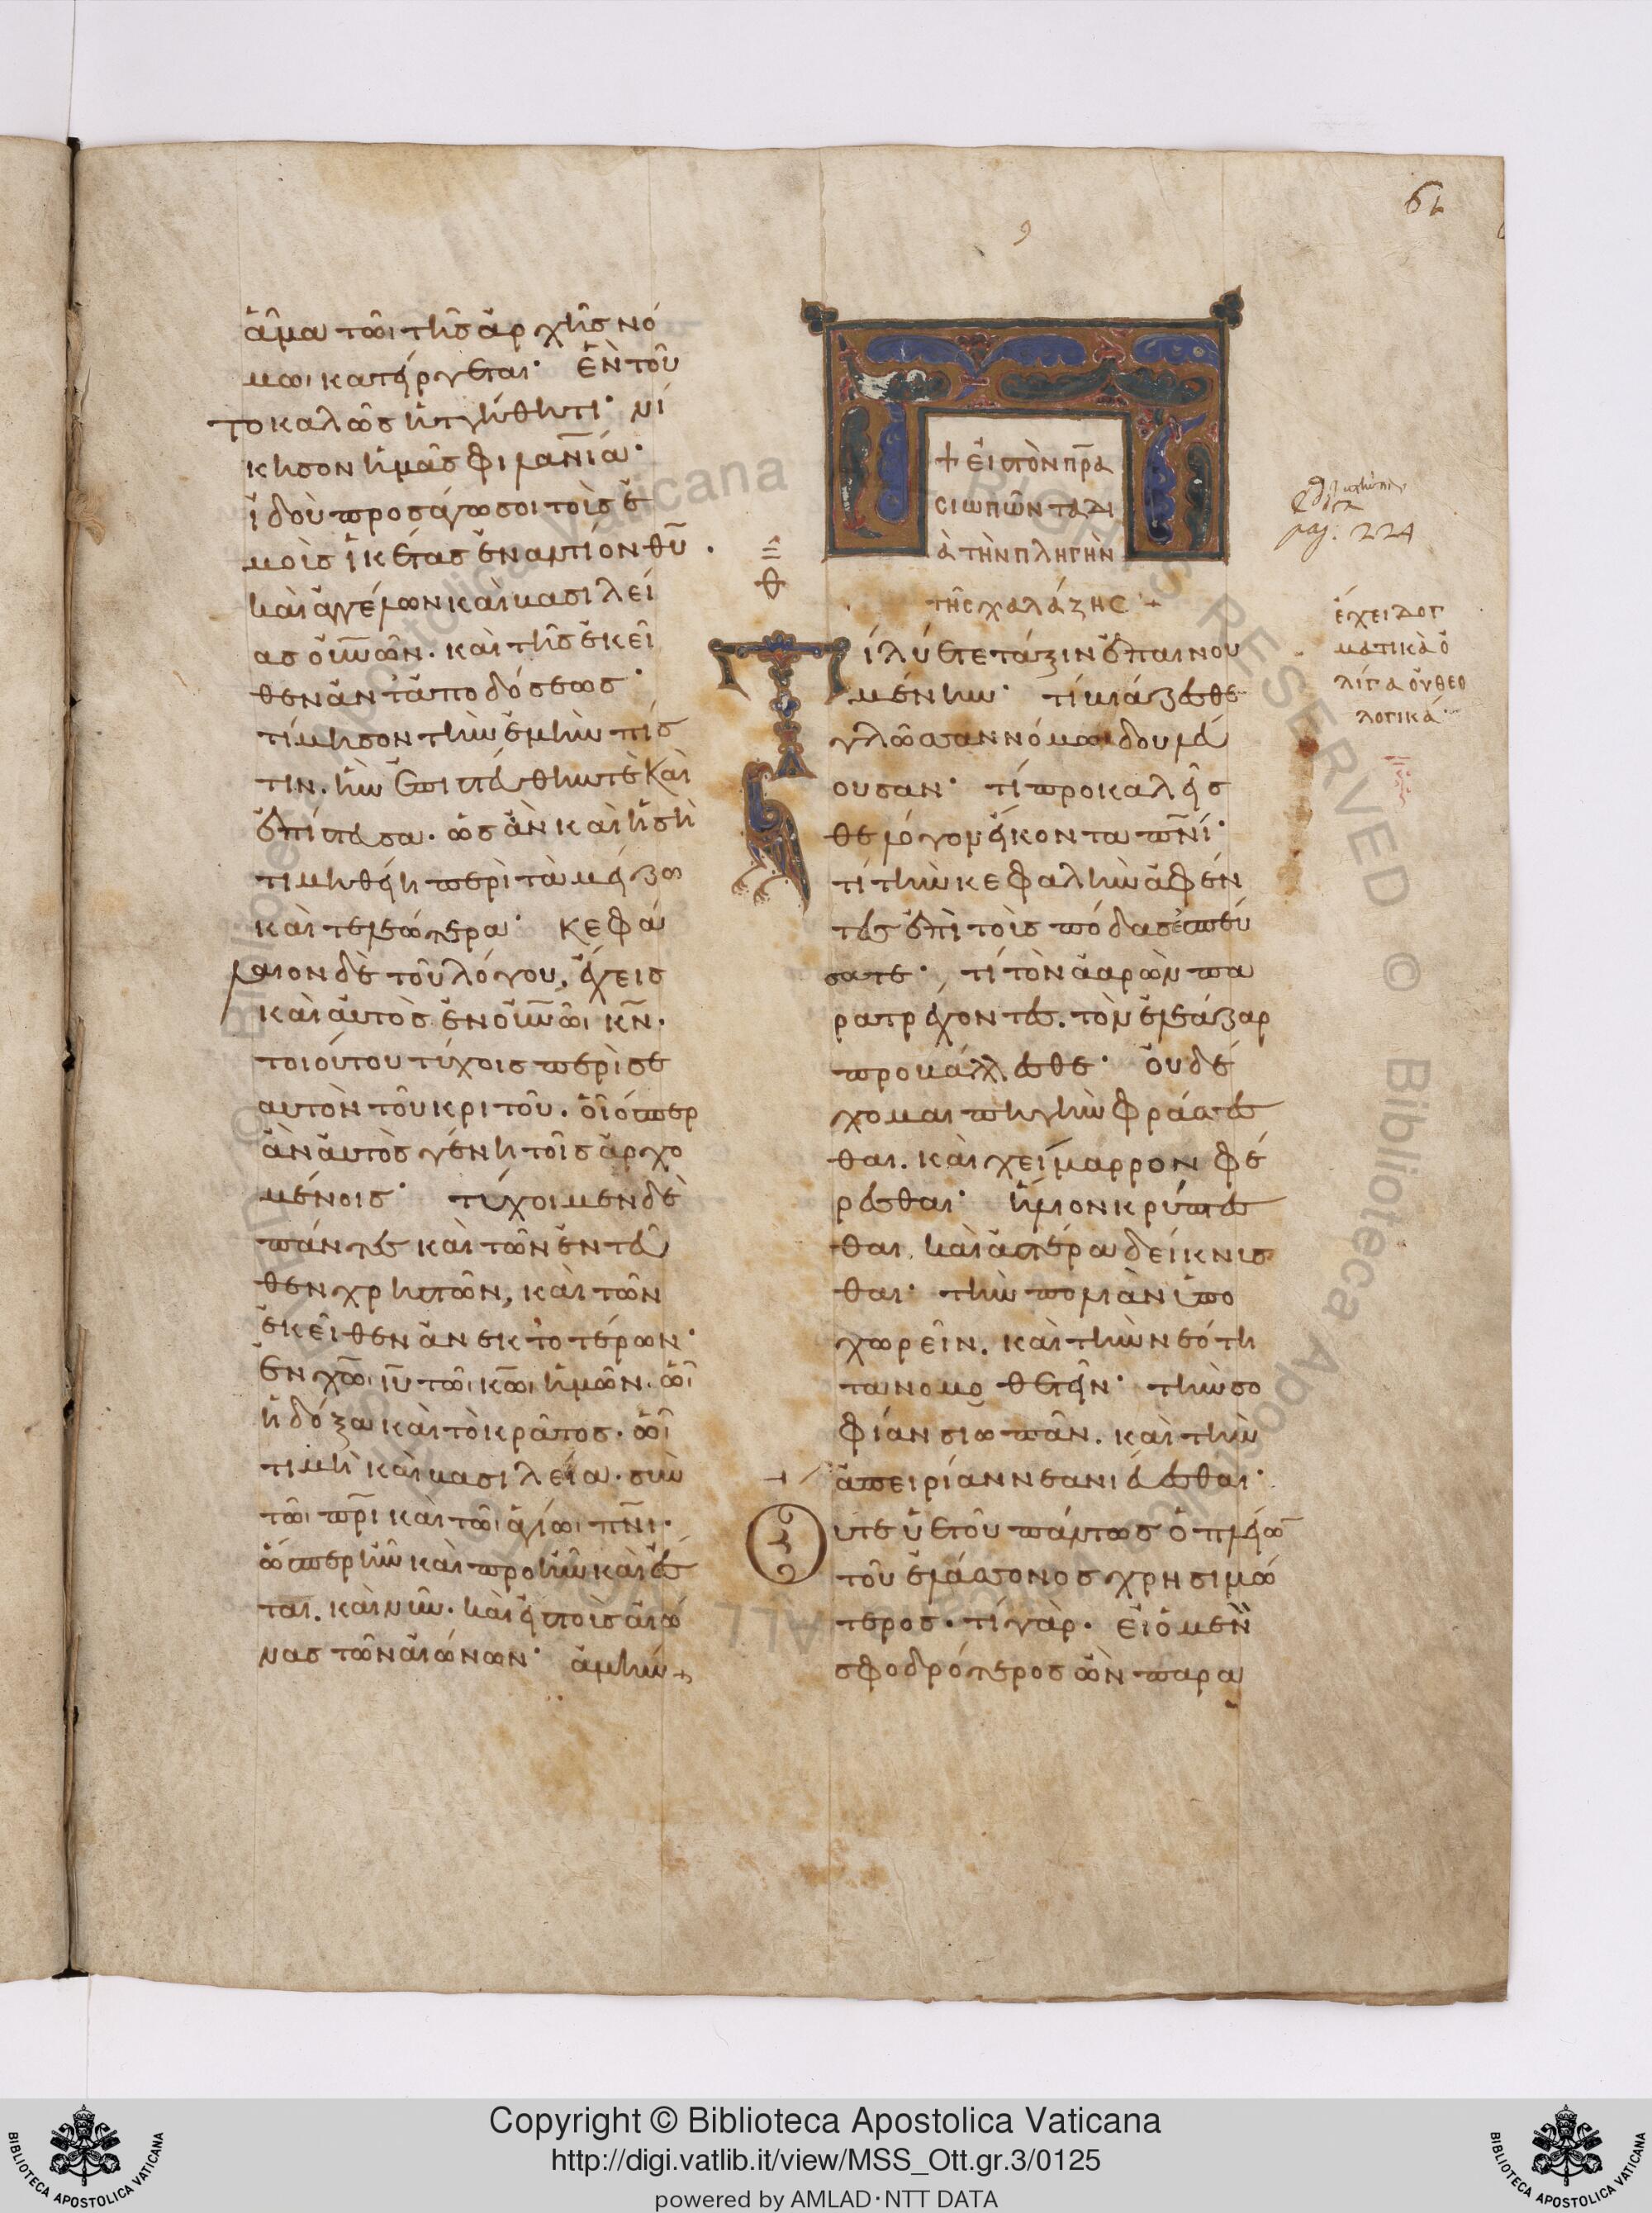 61
9
ἅμα τῶι τῆς ἀρχῆς νό
μωι κατείργεται· ἐν τοῦ
το καλῶς ἡττήθητι· νί
κησον ἡμᾶς φιλαν̅ί̅α·
ἰδοὺ προσάγω σοι τοὺς ἐ
μοὺς ἱκέτας ἐναντίον θυ̅.
καὶ ἀγγέλων καὶ βασιλεί
ας οὐν̅ῶν. καὶ τῆς ἐκεῖ
θεν ἀνταποδόσεως·
τίμησον τὴν ἐμὴν πίσ
τιν. ἣν ἐπιστεύθην τὲ καὶ
ἐπίστευσα. ὡς ἂν καὶ ἡ σὴ
τιμηθείη περὶ τὰ μείζω
καὶ τελεώτερα· κεφά
λαιον δὲ τοῦ λόγου, ἔχεις
καὶ αὐτὸς ἐν οὐν̅ῶι κν̅.
τοιούτου τύχοις περὶ σε
αυτὸν τοῦ κριτοῦ. οἷόσπερ
ἂν αὐτὸς γένη τοῖς ἀρχο
μένοις· τύχοιμεν δὲ
πάντες καὶ τῶν ἐνταῦ
θεν χρηστῶν, καὶ τῶν
ἐκεῖθεν ἀνεκτοτέρων·
ἐν χω̅ι ιυ̅ τῶι κω̅ι ἡμῶν. ὧι
ἡ δόξα καὶ τὸ κράτος. ὧι
τιμὴ καὶ βασιλεία. σὺν
τῶι πρ̅ι καὶ τῶι ἁγίωι πν̅ι.
ὥσπερ ἦν καὶ προῆν καὶ ἔσ
ται. καὶ νῦν. καὶ εἰς τοὺς αἰῶ
νας τῶν αἰώνων· ἀμήν+
+ εἰς τὸν πρ̅α
σιωπῶντα δι
ὰ τὴν πληγὴν
τῆς χαλάζης +
θ
Τί λύετε τάξιν ἐπαινου
μένην· τί βιάζεσθε
γλῶσσαν νόμωι δουλεύ
ουσαν· τί προκαλεῖσ
θε λόγον εἴκοντα πν̅ί·
τί τὴν κεφαλὴν ἀφέν
τες ἐπὶ τοὺς πόδας ἐσπεύ
σατε· τί τὸν ἀαρὼν πα
ρατρέχοντες. τὸν ἐλεάζαρ
προβάλλεσθε· οὐ δέ
χομαι πηγὴν φράσσεσ
θαι. καὶ χείμαρρον φέ
ρεσθαι· ἥλιον κρύπτεσ
θαι. καὶ ἀστέρα δείκνυσ
θαι· τὴν πολιὰν ὑπο
χωρεῖν. καὶ τὴν νεότη
τα νομοθετεῖν· τὴν σο
φίαν σιωπᾶν. καὶ τὴν
ἀπειρίαν νεανιεύεσθαι·
Οὔτε ὑετοῦ πάντως ὁ πλείω̅
τοῦ ἐλάσσονος χρησιμώ
τερος. τί γὰρ. εἰ ὁ μὲν
σφοδρότερος ὢν παρα
pag. 224
ἔχει δογ
ματικὰ ὀ
λίγα οὐ θεο
λογικά·
Copyright © Biblioteca Apostolica Vaticana
http://digi.vatlib.it/view/MSS_Ott.gr.3/0125
powered by AMLAD·NTT DATA
BIBLIOTECA APOSTOLICA VATICANA
BIBLIOTECA APOSTOLICA VATICANA